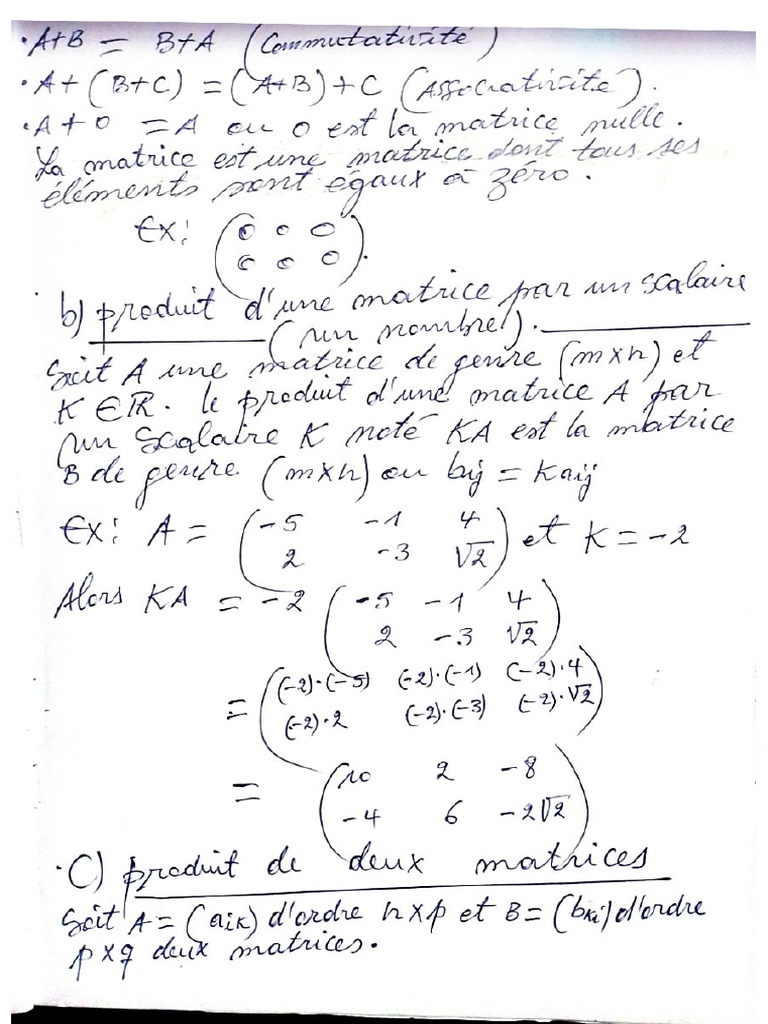 • A+B = B+A (Commutativité)
• A+(B+C) = (A+B)+C (Associativité).
• A+0 = A ou 0 est la matrice nulle.
La matrice est une matrice dont tous ses
éléments sont égaux à zéro.
Ex: ( 0 0 0
0 0 0 ).
b) produit d'une matrice par un scalaire
(un nombre).
Soit A une matrice de genre (m×n) et
K ∈ ℝ. le produit d'une matrice A par
un scalaire K noté KA est la matrice
B de genre (m×n) ou bij = Kaij
Ex: A = ( -5 -1 4
2 -3 √2 ) et K = -2
Alors KA = -2 ( -5 -1 4
2 -3 √2 )
= ( (-2)·(-5) (-2)·(-1) (-2)·4
(-2)·2 (-2)·(-3) (-2)·√2 )
= ( 10 2 -8
-4 6 -2√2 )
C) produit de deux matrices
Soit A = (aik) d'ordre n×p et B = (bki) d'ordre
p×q deux matrices.